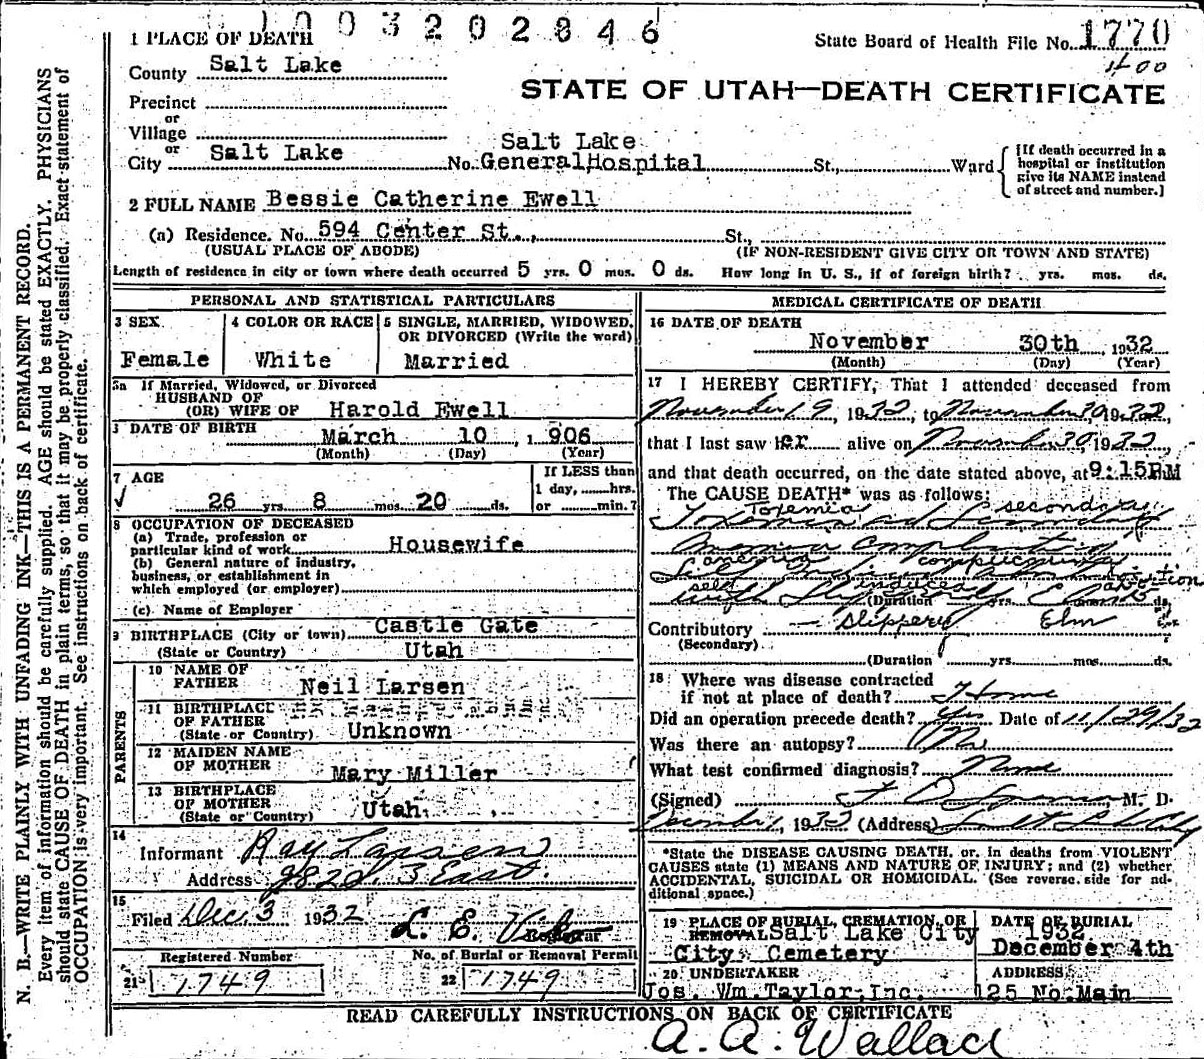 1003202846
1 PLACE OF DEATH
State Board of Health File No. 1770
400
County Salt Lake
STATE OF UTAH—DEATH CERTIFICATE
Precinct
or
Village
or
City Salt Lake No. Salt Lake General Hospital St., Ward
[If death occurred in a
hospital or institution
give its NAME instead
of street and number.]
2 FULL NAME Bessie Catherine Ewell
(a) Residence. No. 594 Center St., St.,
(USUAL PLACE OF ABODE) (IF NON-RESIDENT GIVE CITY OR TOWN AND STATE)
Length of residence in city or town where death occurred 5 yrs. 0 mos. 0 ds. How long in U. S., if of foreign birth? yrs. mos. ds.
PERSONAL AND STATISTICAL PARTICULARS
3 SEX
Female
4 COLOR OR RACE
White
5 SINGLE, MARRIED, WIDOWED,
OR DIVORCED (Write the word)
Married
5a If Married, Widowed, or Divorced
HUSBAND OF
(OR) WIFE OF Harold Ewell
DATE OF BIRTH March 10, 1906
(Month) (Day) (Year)
7 AGE
26 yrs. 8 mos. 20 ds.
If LESS than
1 day, hrs.
or min.?
8 OCCUPATION OF DECEASED
(a) Trade, profession or
particular kind of work Housewife
(b) General nature of industry,
business, or establishment in
which employed (or employer)
(c) Name of Employer
9 BIRTHPLACE (City or town) Castle Gate
(State or Country) Utah
PARENTS
10 NAME OF
FATHER Neil Larsen
11 BIRTHPLACE
OF FATHER
(State or Country) Unknown
12 MAIDEN NAME
OF MOTHER Mary Miller
13 BIRTHPLACE
OF MOTHER
(State or Country) Utah
14
Informant Ray Larsen
Address 982 So. 3 East.
15
Filed Dec. 3 1932 L. E.
Registrar
Registered Number
21 1749
No. of Burial or Removal Permit
22 1749
MEDICAL CERTIFICATE OF DEATH
16 DATE OF DEATH
November 30th, 1932
(Month) (Day) (Year)
17 I HEREBY CERTIFY, That I attended deceased from
November 19, 1932, to November 30, 1932,
that I last saw her alive on November 30, 1932
and that death occurred, on the date stated above, at 9:15PM
The CAUSE DEATH* was as follows:
Toxemia secondary
Toxemia and Secondary
Anemia complicating
self induced abortion
(Duration yrs. mos. ds.
Contributory — slippery Elm
(Secondary)
(Duration yrs. mos. ds.
18 Where was disease contracted
if not at place of death? Home
Did an operation precede death? Yes Date of 11/29/32
Was there an autopsy? No
What test confirmed diagnosis? None
(Signed) M. D.
December 1, 1932 (Address) Salt Lake City
*State the DISEASE CAUSING DEATH, or, in deaths from VIOLENT
CAUSES state (1) MEANS AND NATURE OF INJURY; and (2) whether
ACCIDENTAL, SUICIDAL OR HOMICIDAL. (See reverse side for ad-
ditional space.)
19 PLACE OF BURIAL, CREMATION, OR
REMOVAL Salt Lake City
City Cemetery
DATE OF BURIAL
1932
December 4th
20 UNDERTAKER
Jos. Wm. Taylor, Inc.
ADDRESS
125 No. Main
READ CAREFULLY INSTRUCTIONS ON BACK OF CERTIFICATE
A. A. Wallace
N. B.—WRITE PLAINLY WITH UNFADING INK—THIS IS A PERMANENT RECORD.
Every item of information should be carefully supplied. AGE should be stated EXACTLY. PHYSICIANS
should state CAUSE OF DEATH in plain terms, so that it may be properly classified. Exact statement of
OCCUPATION is very important. See instructions on back of certificate.